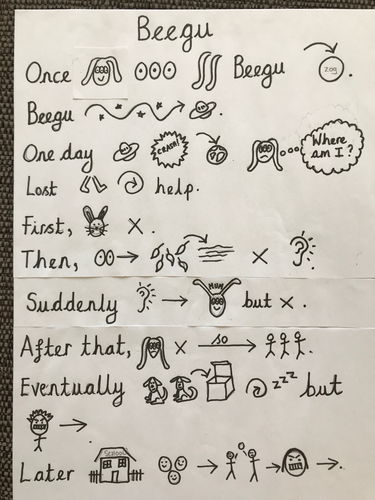 Beegu
Once Beegu ZOG.
Beegu .
One day CRASH! Where am I?
Lost help.
First, X.
Then, X ?
Suddenly MUM but x.
After that, X so .
Eventually zzz but
.
Later SCHOOL .